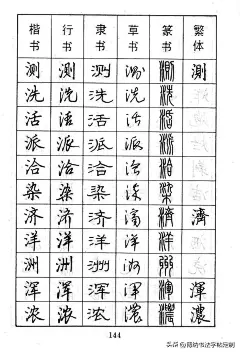 楷书 行书 隶书 草书 篆书 繁体
测 测 测 测 測 測
洗 洗 洗 洗 洗
活 活 活 活 活
派 派 派 派 派
洽 洽 洽 洽 洽
染 染 染 染 染
济 济 济 濟 濟 濟
洋 洋 洋 洋 洋
洲 洲 洲 洲
浑 浑 浑 浑 渾 渾
浓 浓 浓 濃 濃 濃
144